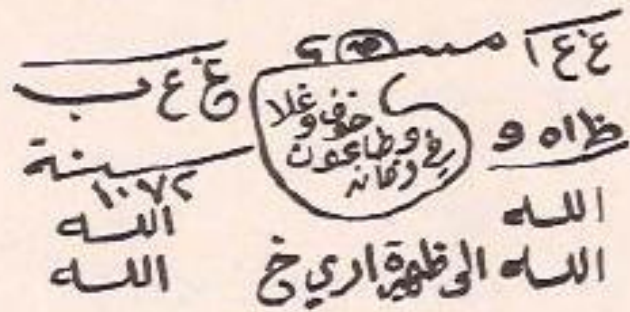 غ ع ا مسـ ع ع ب
خوف وغلا
وطاعون
في زمانه
ظ ا ه و
سنة
١٠٧٢
الله الله
الله الى ظهيرة اري خ الله